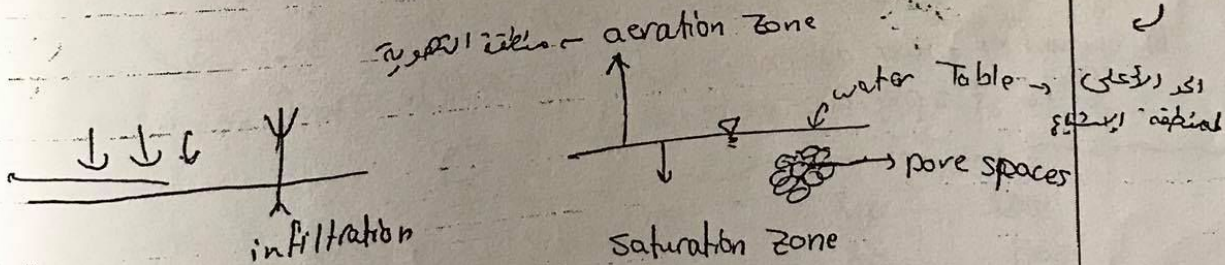 منطقة التهوية ← aeration zone
water Table → الحد الأعلى
لمنطقة الإشباع
→ pore spaces
infiltration
saturation zone